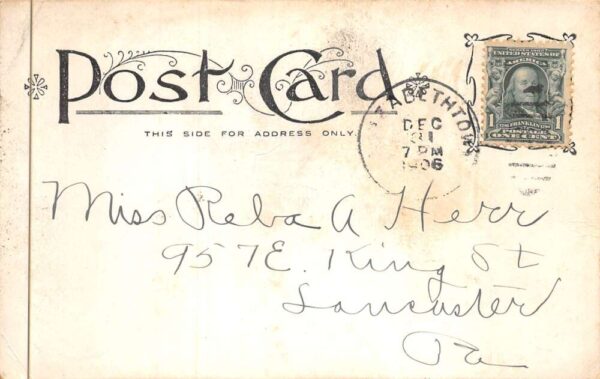 Post Card
THIS SIDE FOR ADDRESS ONLY.
UNITED STATES OF
AMERICA
1 FRANKLIN 1
POSTAGE
ONE CENT
ZABETHTOWN
DEC
31
7 PM
1906
Miss Reba A Herr
957 E. King St
Lancaster
Pa